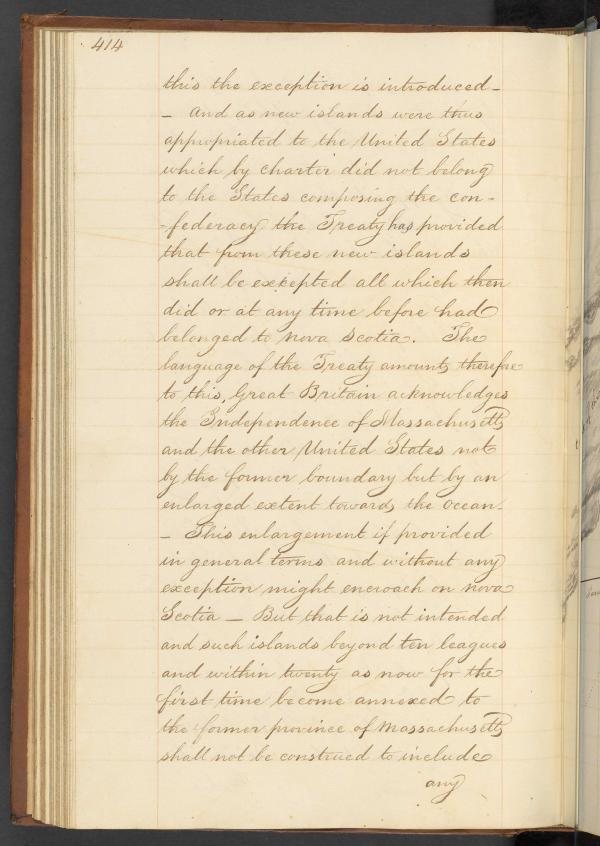 414
this the exception is introduced -
- And as new islands were thus
appropriated to the United States
which by charter did not belong
to the States composing the con-
-federacy the Treaty has provided
that from these new islands
shall be excepted all which then
did or at any time before had
belonged to Nova Scotia. The
language of the Treaty amounts therefore
to this, Great Britain acknowledges
the Independence of Massachusetts
and the other United States not
by the former boundary but by an
enlarged extent towards the Ocean.
- This enlargement if provided
in general terms and without any
exception might encroach on Nova
Scotia - But that is not intended
and such islands beyond ten leagues
and within twenty as now for the
first time become annexed to
the former province of Massachusetts
shall not be construed to include
any